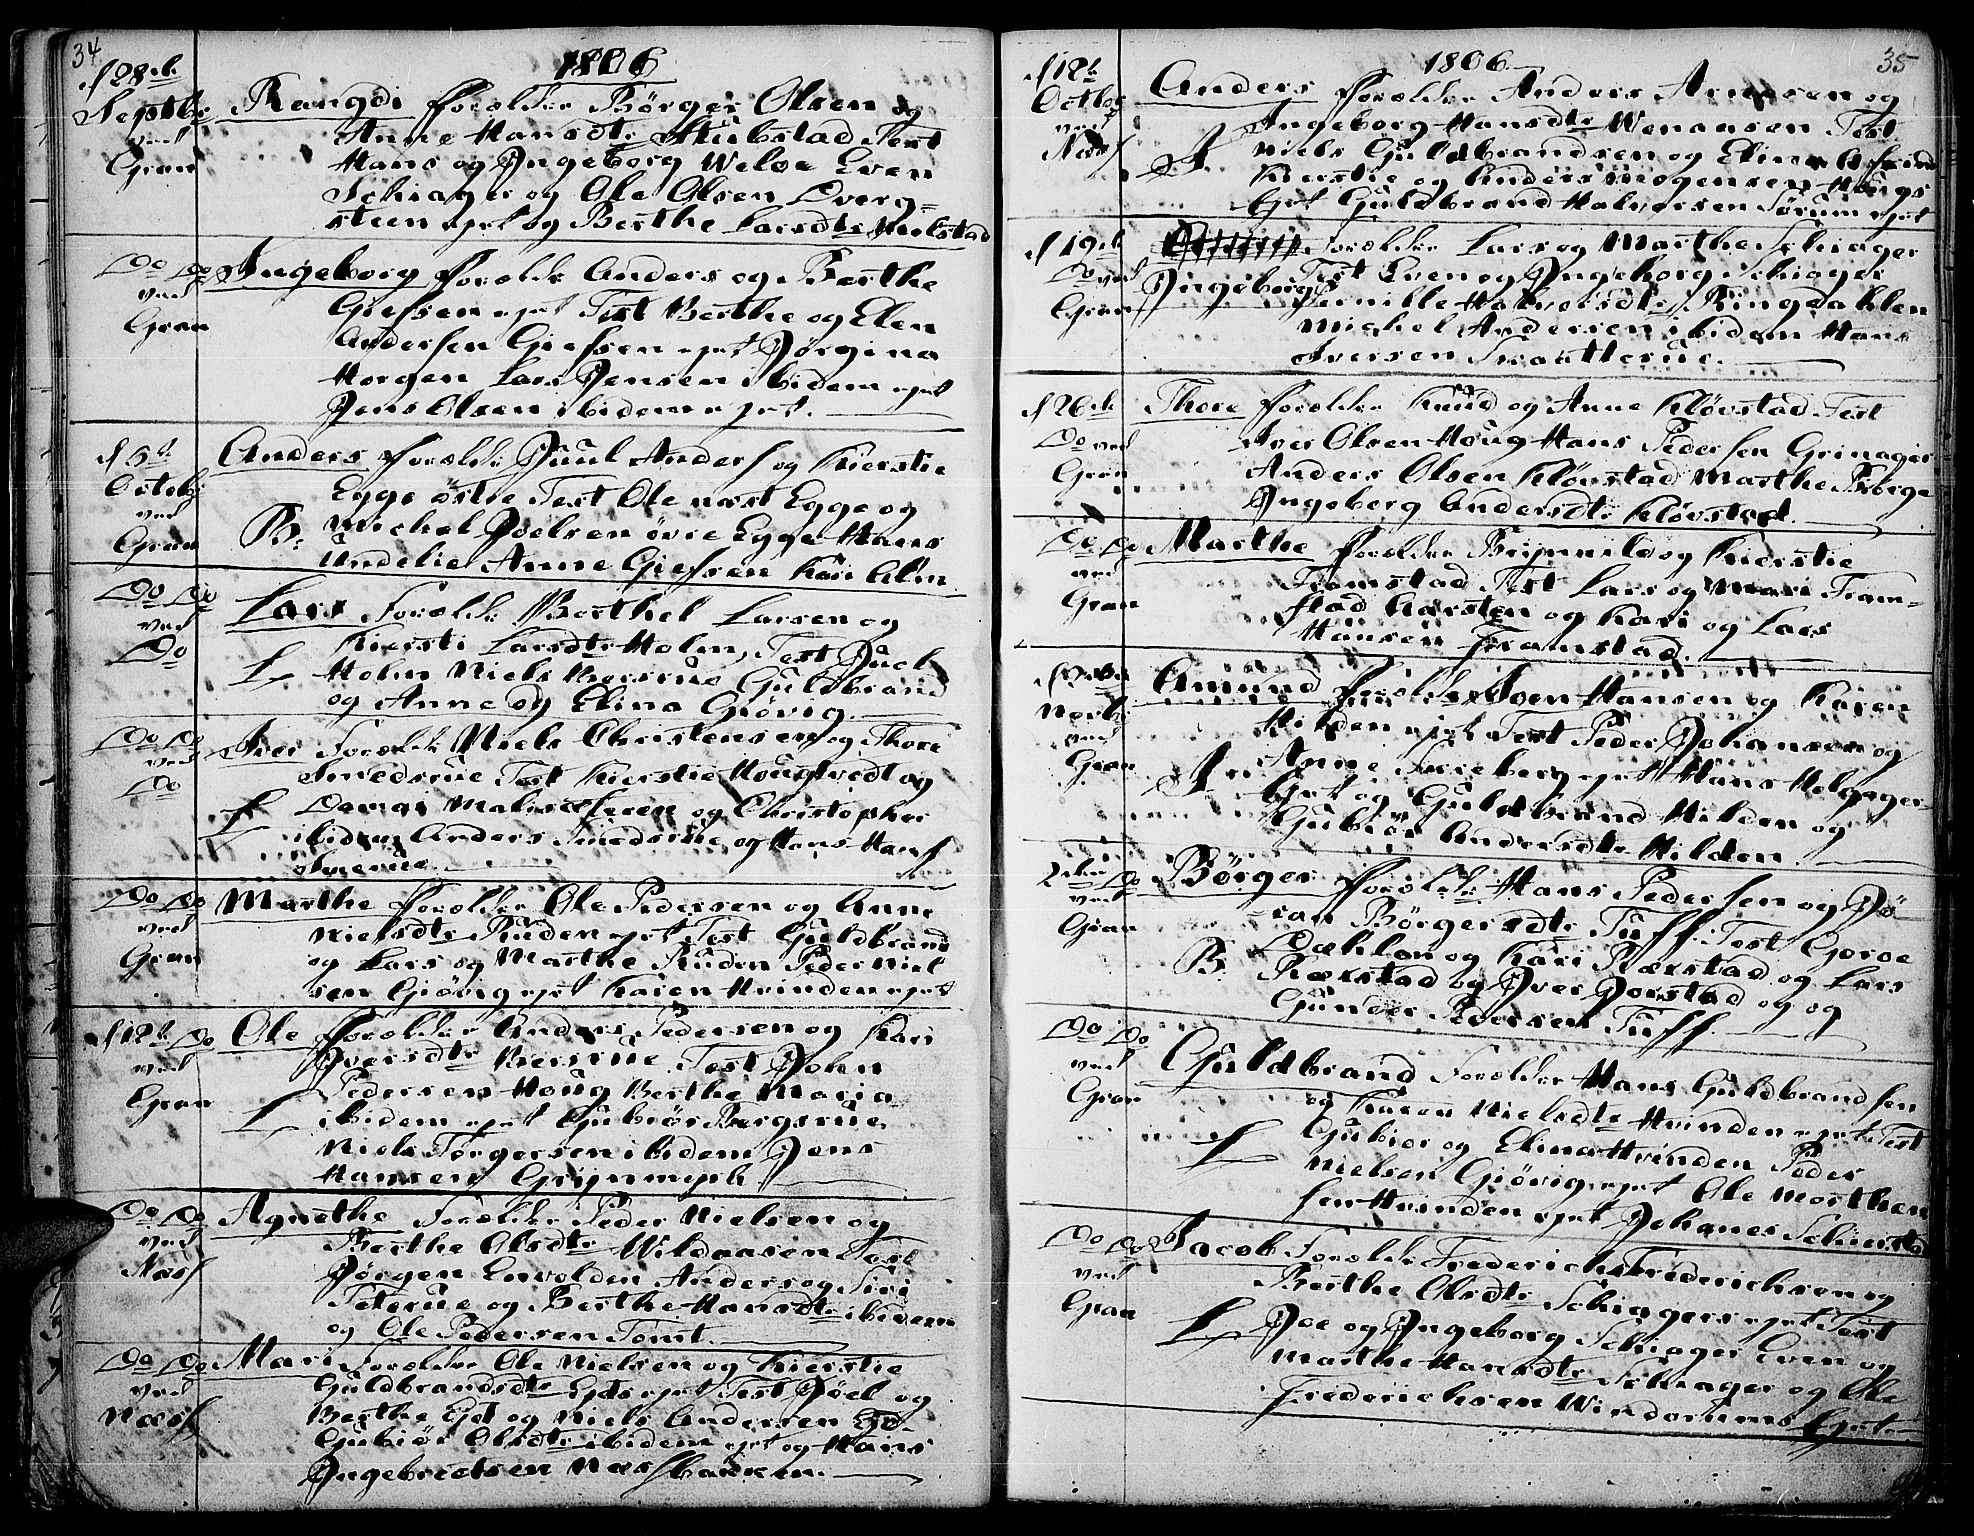 34
1806
d 28de
Septbr
ved
Gran
Rangdi Forældre Børger Olsen og
Anne Hansdtr Stubstad Test
Hans og Ingeborg Weloe Even
Schiager og Ole Olsen Dverg=
steen ejet og Berthe Larsdtr Mielstad
Do Do
ved
Gran
Ingeborg Forældr Anders og Berthe
Giefsen ejet Test Berthe og Elen
Andersen Giefsen ejet Jørgina
Horgen Lars Jensen ibidem ejet
Jens Olsen ibidem ejet.
d 5te
Octobr
ved
Gran
Anders Forældr Juul Anders og Kierstie
Egge østre Test Ole næst Egge og
B: Michel Joelsen øvre Egge Hans
Undelie Anne Giefsen Kari Alm
Do Do
ved
Do
Lars Forældr Berthel Larsen og
Kiersti Larsdtr Holm, Test Juel
Holm Niels Kiersrue Guldbrand
og Anne og Elina Giøvig.
Do Do
ved
Do
Iver Forældr Niels Christensen og Thore
Smedsrue Test Kierstie Hougtvedt og
og Christopher
ibidem Anders Smedsrue og Hans Hans
Do Do
ved
Gran
Marthe Forældre Ole Pedersen og Anne
Nielsdtr Ruden ejet Test Guldbrand
og Lars og Marthe Ruden Peder Niel
sen Giøvig ejet Karen Hvinden ejet
d 12te Do
ved
Gran
Ole Forældre Anders Pedersen og Kari
Iversdtr Kiersrue Test John
Pedersen Houg Berthe Maria
ibidem ejet Gubiør Bergsrue
Niels Torgersen ibidem Jens
Hansen Grinmyh
Do Do
ved
Næss
Agnethe Forældre Peder Nielsen og
Berthe Olsdtr Wildaasen Test
Jørgen Envolden Anders og Siri
Teterue og Berthe Hansdtr ibidem
og Ole Pedersen Tomt.
Do Do
ved
Næss
Mari Forældre Ole Nielsen og Kierstie
Guldbrandsdtr Egds ejet Test Joel og
Berthe Egd og Niels Andersen
Gubiør Olsdtr ibidem ejet og Hans
Ingebretsen Næssbakken.
35
1806
d 12te
Octobr
ved
Næss
Anders Forældre Anders Arnesen og
Ingeborg Hansdtr Wenaasen Test
Niels Guldbrandsen og Elina
Kierstie og Anders Mogensen Hougs
Ejet Guldbrand Halvorsen Sørum ejet
d 19de
Do ved
Gran
Forældre Lars og Marthe Schiager
Ingeborg Test Even og Ingeborg Schiager
Pernille Halvorsdtr Ringdahlen
Michel Andersen ibidem Hans
Iversen
d 26de
Do ved
Gran
Thore Forældre Knud og Anne Kløvstad Test
Iver Olsen Houg Hans Pedersen Grinager
Anders Olsen Kløvstad Marthe Berge
Ingeborg Andersdtr Kløvstad
Do Do
ved
Gran
Marthe Forældre Brynnild og Kierstie
Framstad Test Lars og Mari Fram=
stad Karsten og Kari og Lars
Hansen Framstad.
ved
Gran
Amund Forældre Iver Hansen og Karen
Hilden ejet Test Peder Johansen og
Anne ejet Hans Helgager
Ejet og Guldbrand Hilden og
Gubiør Andersdtr Hilden.
Do
ved
Gran
Børger Forældre Hans Pedersen og Jø
ran Børgersdtr Tuff: Test Goroe
Dæhlen og Kari Rækstad og Lars
B. Rækstad og Iver Jorstad og og
Gunder Pedersen Tuff.
Do Do
ved
Gran
Guldbrand Forældre Hans Guldbrandsen
og Karen Nielsdtr Hvinden ejet Test
Gubiør og Elina Hvinden Peder
Nielsen Giøvig ejet Ole Morthen
sen Hvinden ejet Johannes
Do Do
ved
Gran
Jacob Forældr Frederich Friderichsen og
Berthe Olsdtr Schiagers ejet Test
Joe og Ingeborg Schiager Even og
Marthe Hansdtr Schiager og Ole
Frederichsen Windorums
Ejet